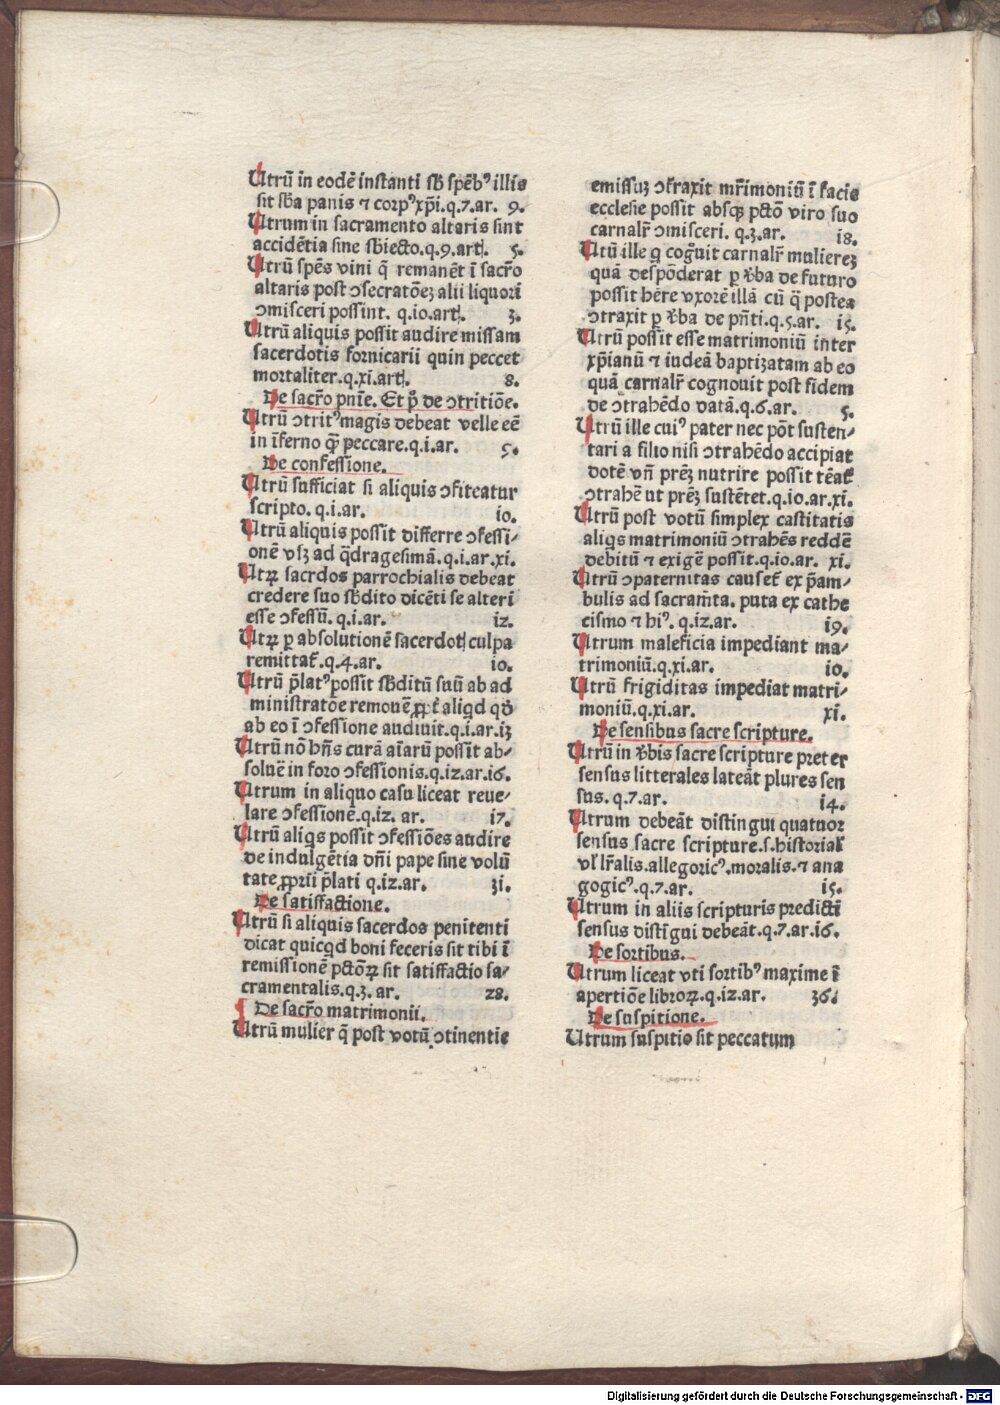 Utrū in eodē instanti sb spēb⁹ illis
sit sba panis ⁊ corp⁹ xp̄i.q.7.ar. 9.
Utrum in sacramento altaris sint
accidētia sine sbiecto.q.9.art. 5.
Utrū spēs vini q̄ remanēt ī sacr̄o
altaris post ↄsecratōeꝫ alii liquori
ↄmisceri possint. q.io.art. 3.
Utrū aliquis possit audire missam
sacerdotis fornicarii quin peccet
mortaliter.q.xi.art. 8.
De sacr̄o pnīe. Et p̄ de ↄtritiōe.
Utrū ↄtrit⁹ magis debeat velle eē
in īferno q̄ꝫ peccare.q.i.ar. 5.
De confessione.
Utrū sufficiat si aliquis ↄfiteatur
scripto. q.i.ar. io.
Utrū aliquis possit differre ↄfessi-
onē vsꝫ ad q̄dragesimā.q.i.ar.xi.
Utꝝ sacrdos parrochialis debeat
credere suo sbdito dicēti se alteri
esse ↄfessū. q.i.ar. iz.
Utꝝ p absolutionē sacerdot culpa
remittat̄. q.4.ar. io.
Utrū p̄lat⁹ possit sbditū suū ab ad
ministratōe remouē ꝓpt̄ aliqd qd̄
ab eo ī ↄfessione audiuit.q.i.ar.i3
Utrū nō hn̄s curā aīarū possit ab-
soluē in foro ↄfessionis.q.iz.ar.i6.
Utrum in aliquo casu liceat reue-
lare ↄfessionē.q.iz. ar. i7.
Utrū aliqs possit ↄfessiōes audire
de indulgētia dn̄i pape sine volū
tate ꝓprii p̄lati q.iz.ar. 3i.
De satisfactione.
Utrū si aliquis sacerdos penitenti
dicat quicqd boni feceris sit tibi ī
remissionē pctōꝝ sit satisfactio sa-
cramentalis.q.3. ar. z8.
De sacr̄o matrimonii.
Utrū mulier q̄ post votū ↄtinentie
emissuꝫ ↄt̄raxit mr̄imoniū ī facie
ecclesie possit absqꝫ pctō viro suo
carnalr̄ ↄmisceri. q.3.ar. i8.
Utrū ille q coḡuit carnalr̄ muliereꝫ
quā despōderat p v̄ba de futuro
possit hēre vxorē illā cū q̄ postea
ↄtraxit p v̄ba de pn̄ti.q.5.ar. i5.
Utrū possit esse matrimoniū inter
xp̄ianū ⁊ iudeā baptizatam ab eo
quā carnalr̄ cognouit post fidem
de ↄtrahēdo datā.q.6.ar. 5.
Utrū ille cui⁹ pater nec pōt susten-
tari a filio nisi ↄtrahēdo accipiat
dotē vn̄ prēꝫ nutrire possit tēat̄
ↄtrahē ut prēꝫ sustētet.q.io.ar.xi.
Utrū post votū simplex castitatis
aliqs matrimoniū ↄtrahēs reddē
debitū ⁊ exigē possit.q.io.ar. xi.
Utrū ↄpaternitas causet̄ ex p̄am-
bulis ad sacram̄ta. puta ex cathe
cismo ⁊ hi⁹. q.iz.ar. i9.
Utrum maleficia impediant ma-
trimoniū.q.xi.ar. io.
Utrū frigiditas impediat matri-
moniū.q.xi.ar. xi.
De sensibus sacre scripture.
Utrū in v̄bis sacre scripture preter
sensus litterales lateāt plures sen
sus. q.7.ar. i4.
Utrum debeāt distingui quatuor
sensus sacre scripture.s.historial̄
vl̄ lr̄alis.allegoric⁹.moralis.⁊ ana
gogic⁹.q.7.ar. i5.
Utrum in aliis scripturis predicti
sensus distīgui debeāt.q.7.ar.i6.
De sortibus.
Utrum liceat vti sortib⁹ maxime ī
apertiōe libroꝝ.q.iz.ar. 36.
De suspitione.
Utrum suspitio sit peccatum
Digitalisierung gefördert durch die Deutsche Forschungsgemeinschaft - DFG